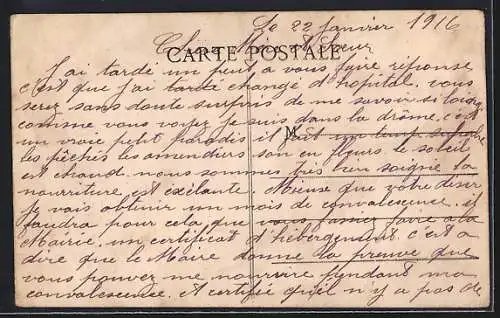 Le 22 Janvier 1916
Cher Mio Sœur
CARTE POSTALE
J'ai tardé un peut a vous faire réponse
c'est que j'ai tardé changé d'hopital. vous
serez sans doute surpris de me savoir si loing
comme vous voyez je suis dans la drôme. c'est
un vraie petit paradis il fait un temp superbe
M
les pêchés les amendiers son en fleurs. le soleil
est chaud. nous sommes très bien soigné la
nourriture est exitante. que votre desir
je vais obtenir un mois de convalescence. il
faudra pour cela que vous faire a la
Mairie. un certificat d'hébergement. c'est a
dire que le Maire donne la preuve que
vous pouvez me nourrire pendant ma
convalescence. et certifie qu'il n'y a pas de